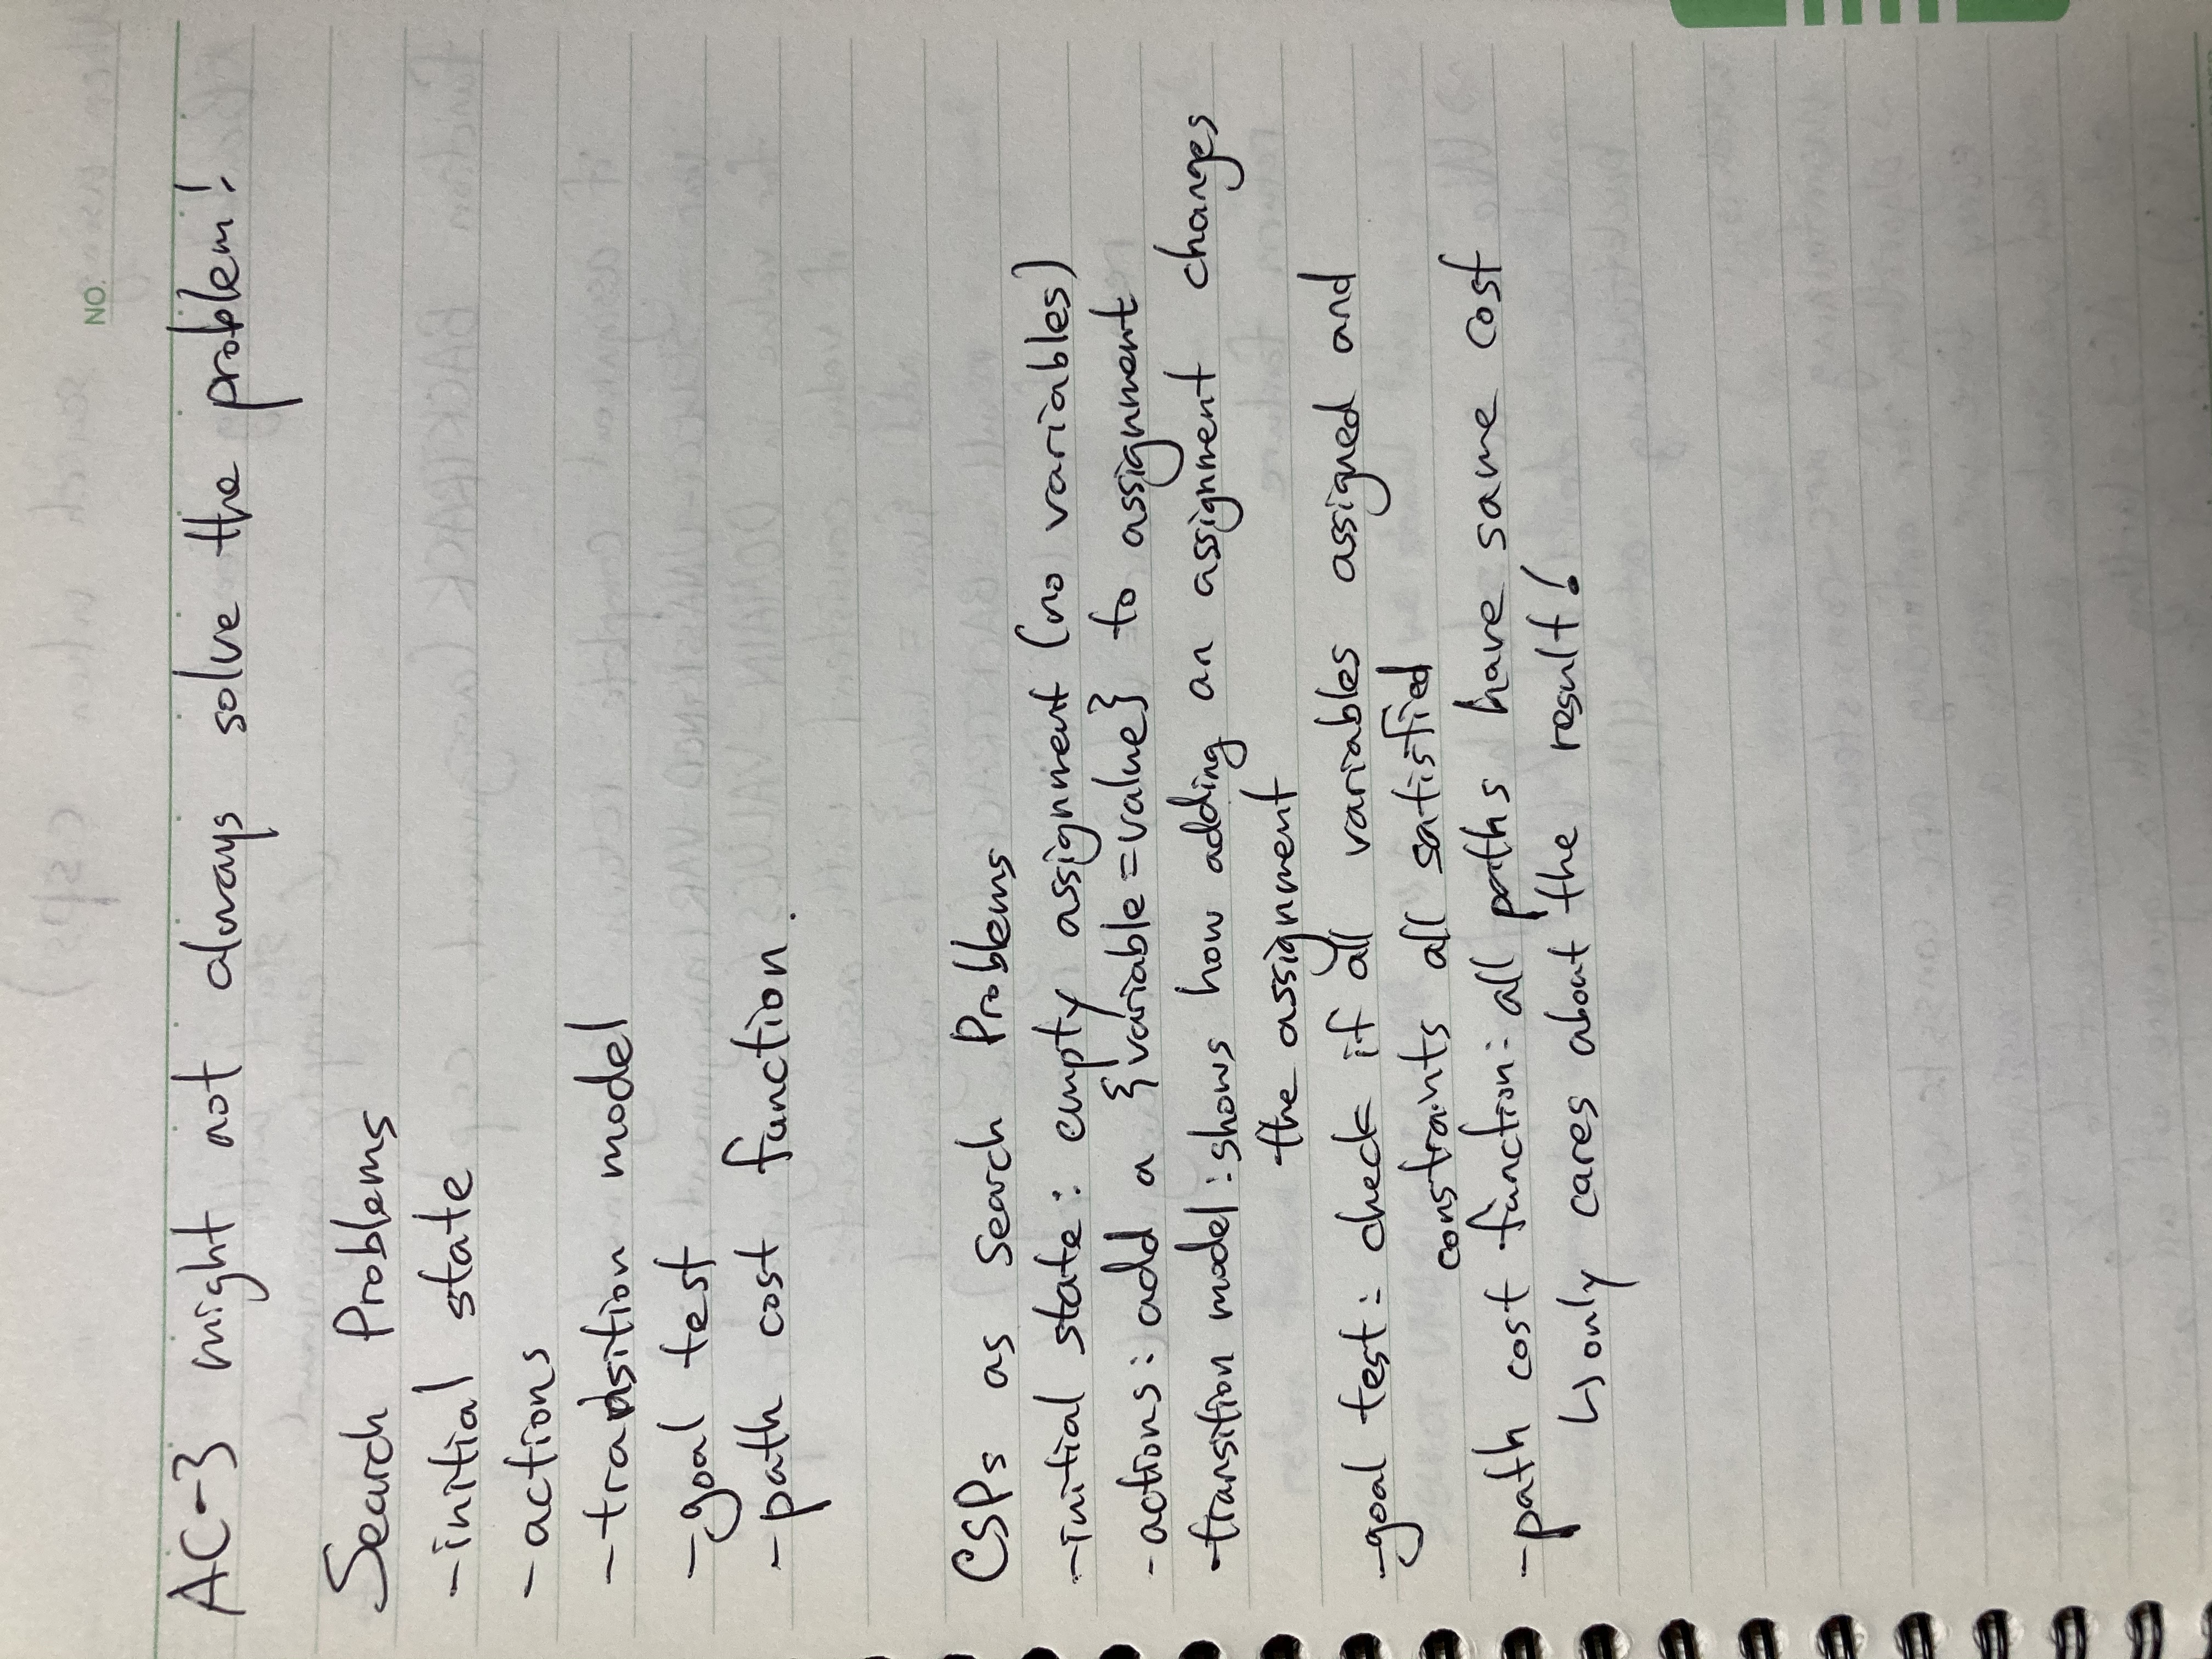 NO.
AC-3 might not always solve the problem!
Search Problems
-initial state
-actions
-transition model
-goal test
-path cost function.
CSPs as Search Problems
-initial state: empty assignment (no variables)
-actions: add a {variable=value} to assignment
-transition model: shows how adding an assignment changes
the assignment
-goal test: check if all variables assigned and
constraints all satisfied
-path cost function: all paths have same cost
↳ only cares about the result!